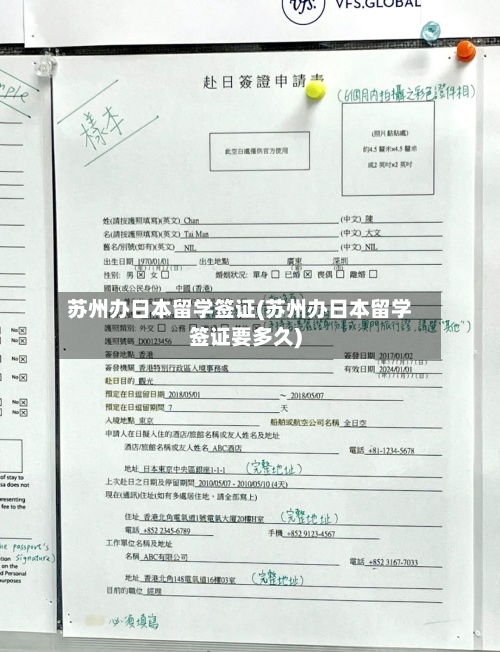 VFS.GLOBAL
赴日簽證申請表
(6個月內拍攝之彩色證件相)
樣本
此空白處僅供官方使用
(照片黏貼處)
約4.5 釐米x4.5 釐米
或2 英吋x2 英吋
姓(請按護照填寫)(英文) Chan (中文) 陳
名(請按護照填寫)(英文) Tai Man (中文) 大文
舊名/別號(如有)(英文) NIL (中文) NIL
出生日期 1970/01/01 出生地點 廣東 深圳
性別: 男 女 婚姻狀況: 單身 已婚 喪偶 離婚
國籍(或公民身份) 中國 (香港)
苏州办日本留学签证(苏州办日本留学
签证要多久)
護照類別: 外交 公務
護照號碼 D00123456
簽發地點 香港 簽發日期 2017/01/02
簽發機關 香港特別行政區入境事務處 有效日期 2024/01/01
赴日目的 觀光
預定在日逗留日期 2018/05/01 ~ 2018/05/07
預定在日逗留期間 7 天
入境地點 東京 船舶或航空公司名稱 全日空
申請人在日擬入住的酒店/旅館名稱或友人姓名及地址
酒店/旅館名稱或友人姓名 ABC酒店 電話 +81-1234-5678
地址 日本東京中央區銀座1-1-1 (完整地址)
上次赴日之日期及停留期間 2010/05/07 - 2010/05/10 (4天)
現在(通訊)住址(如有多處居住地，請全部寫上)
住址 香港北角電氣道1號電氣大廈20樓H室 (完整地址)
電話 +852 2345-6789 手機 +852 9123-4567
工作單位名稱及地址
名稱 ABC有限公司 電話 +852 3167-7033
地址 香港北角148電氣道16樓03室 (完整地址)
目前的職位 經理
必須填寫